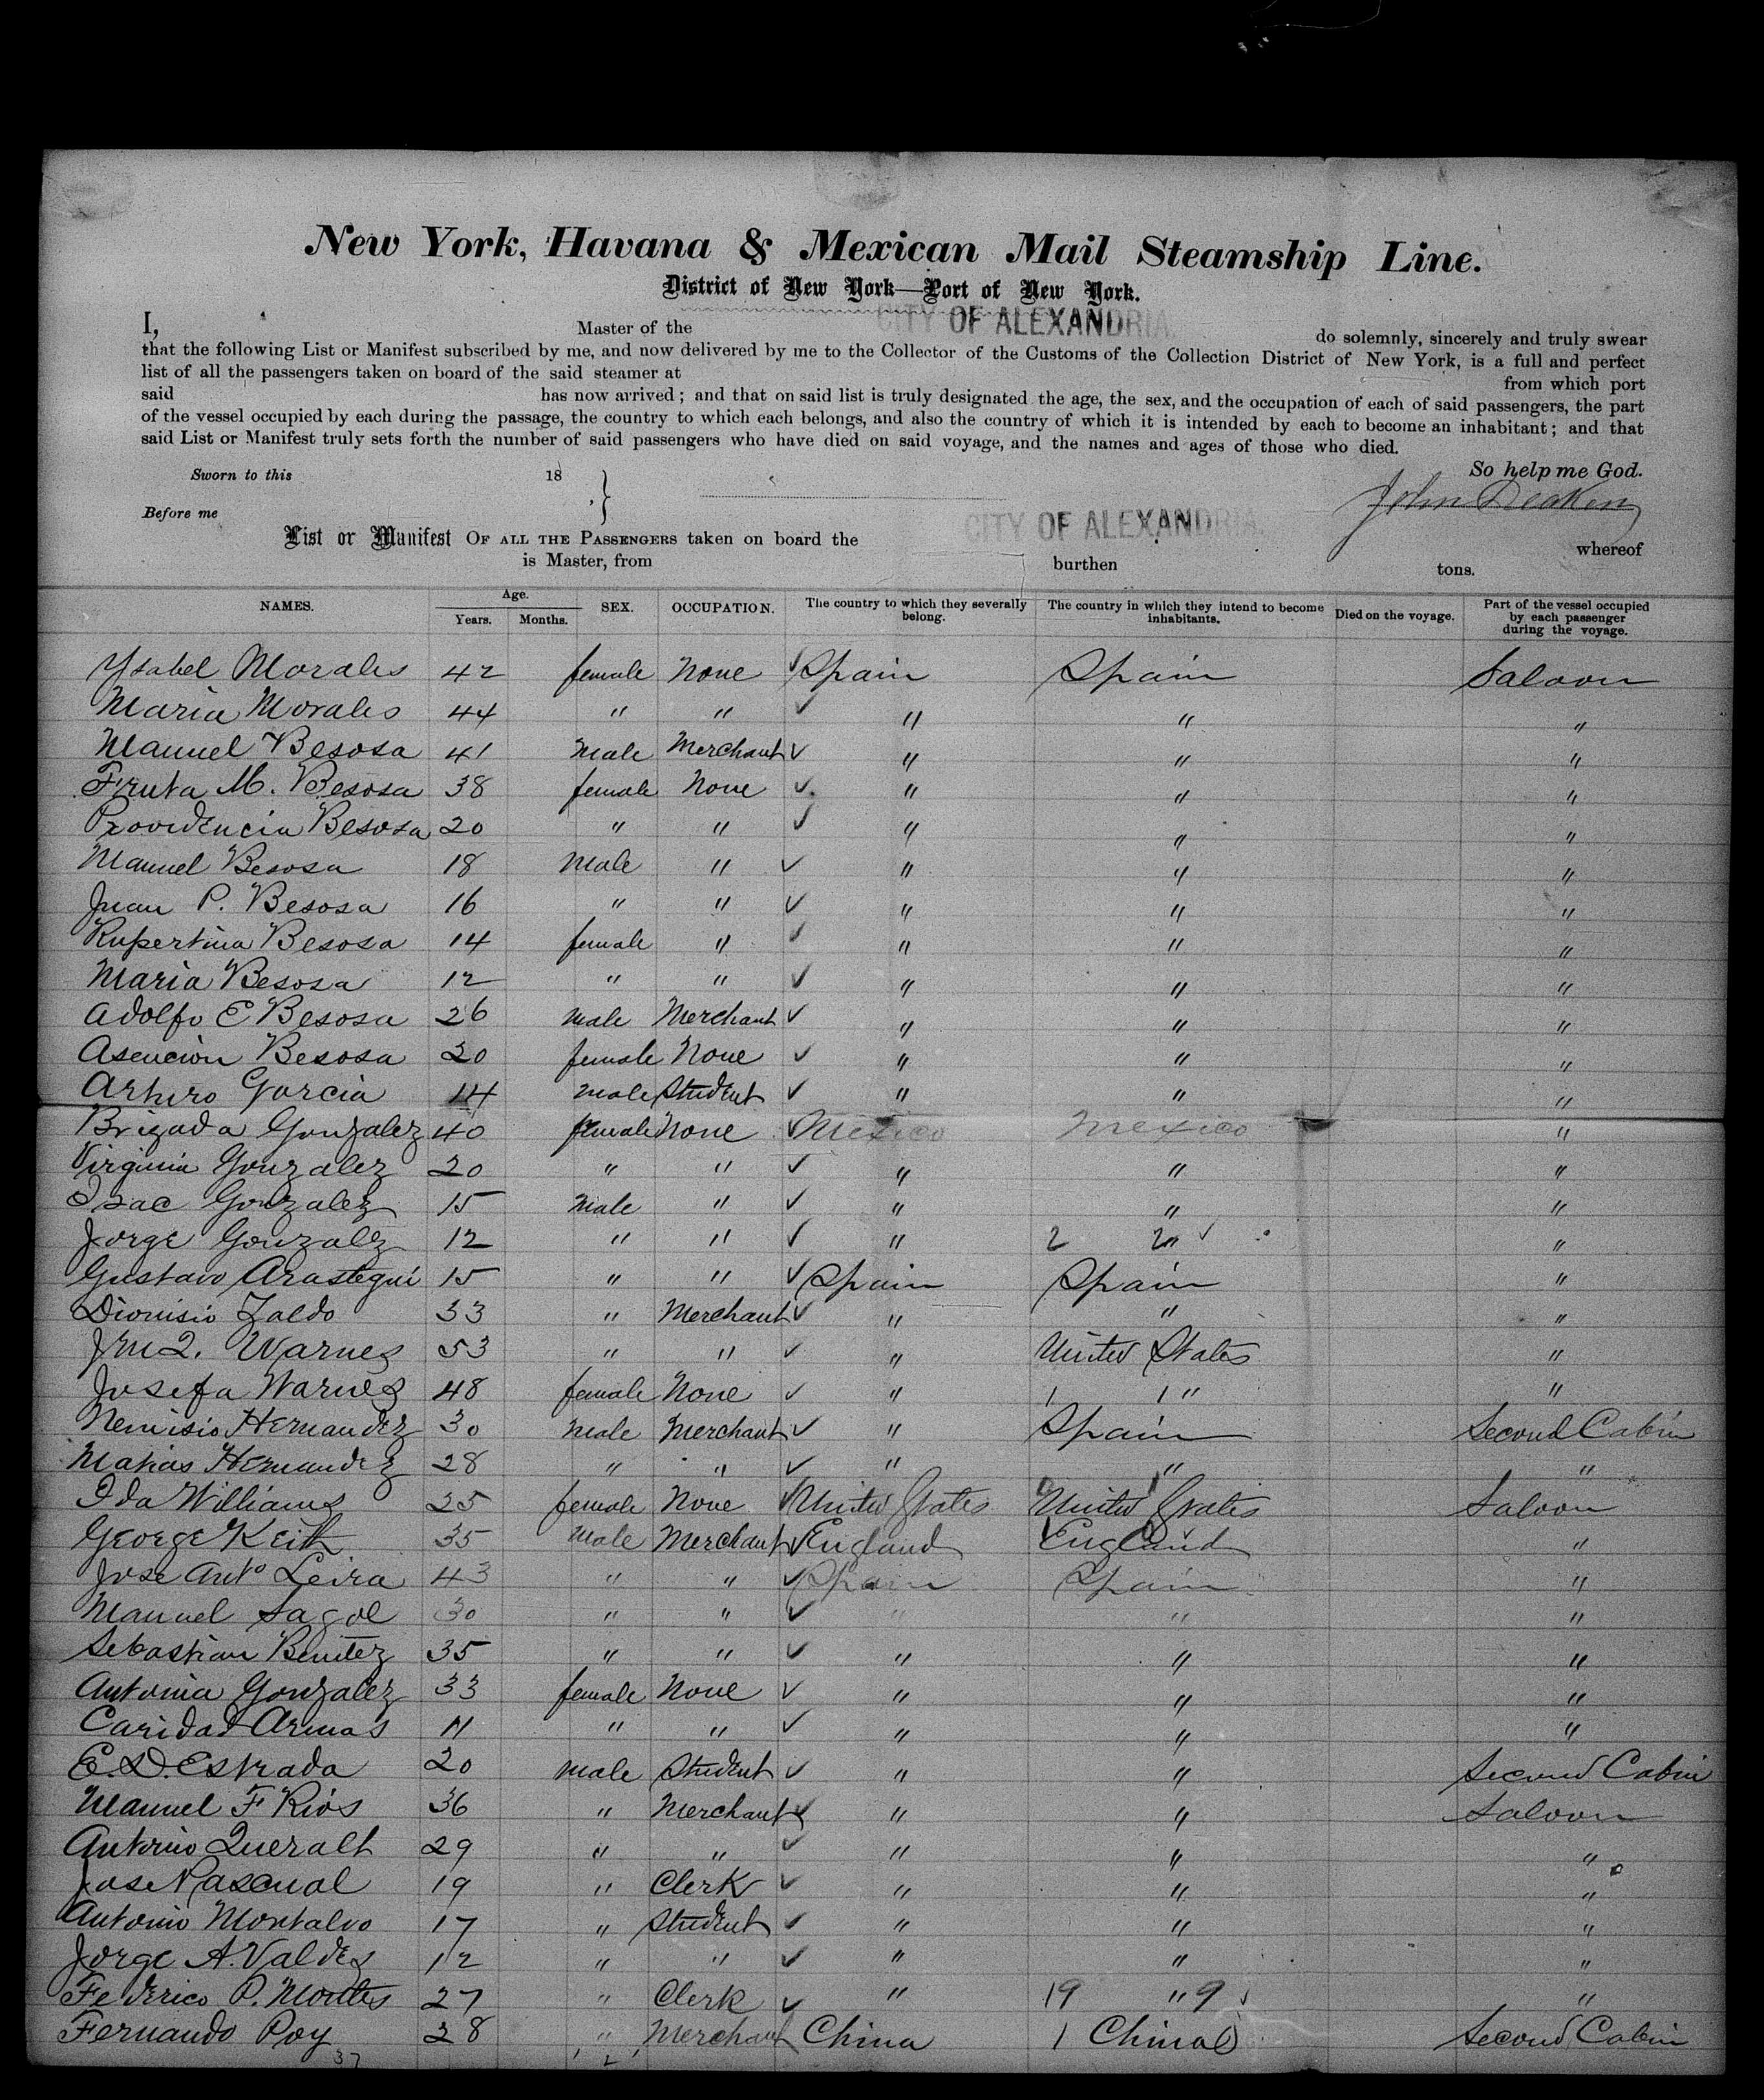 New York, Havana & Mexican Mail Steamship Line.
District of New York—Port of New York.
CITY OF ALEXANDRIA.
I, Master of the do solemnly, sincerely and truly swear
that the following List or Manifest subscribed by me, and now delivered by me to the Collector of the Customs of the Collection District of New York, is a full and perfect
list of all the passengers taken on board of the said steamer at from which port
said has now arrived; and that on said list is truly designated the age, the sex, and the occupation of each of said passengers, the part
of the vessel occupied by each during the passage, the country to which each belongs, and also the country of which it is intended by each to become an inhabitant; and that
said List or Manifest truly sets forth the number of said passengers who have died on said voyage, and the names and ages of those who died.
Sworn to this 18 So help me God.
John Deaken
Before me
CITY OF ALEXANDRIA.
List or Manifest OF ALL THE PASSENGERS taken on board the whereof
is Master, from burthen tons.
NAMES. Age. Years. Months. SEX. OCCUPATION. The country to which they severally belong. The country in which they intend to become inhabitants. Died on the voyage. Part of the vessel occupied by each passenger during the voyage.
Ysabel Morales 42 female None ✓ Spain Spain Saloon
Maria Morales 44 " " ✓ " " "
Manuel Besosa 41 Male Merchant ✓ " " "
Fruta M. Besosa 38 female None ✓ " " "
Providencia Besosa 20 " " ✓ " " "
Manuel Besosa 18 Male " ✓ " " "
Juan P. Besosa 16 " " ✓ " " "
Rupertina Besosa 14 female " ✓ " " "
Maria Besosa 12 " " ✓ " " "
Adolfo E Besosa 26 male Merchant ✓ " " "
Asencion Besosa 20 female None ✓ " " "
Arturo Garcia 14 male Student ✓ " " "
Brigada Gonzalez 40 female None ✓ Mexico Mexico "
Virginia Gonzalez 20 " " ✓ " " "
Isac Gonzalez 15 Male " ✓ " " "
Jorge Gonzalez 12 " " ✓ " 2 2 " ✓ "
Gustavo Arastegui 15 " " ✓ Spain Spain "
Dionisio Zaldo 33 " Merchant ✓ " " "
Warnes 53 " " ✓ " United States "
Josefa Warnes 48 female None ✓ " 1 1 " "
Nemisio Hernandez 30 Male Merchant ✓ " Spain Second Cabin
Matias Hernandez 28 " " ✓ " " "
Ida Williams 25 female None ✓ United States United States Saloon
George Keith 35 Male Merchant ✓ England England "
Jose Anto Leira 43 " " ✓ Spain Spain "
Manuel Sagol 30 " " ✓ " " "
Sebastian Benitez 35 " " ✓ " " "
Antonia Gonzalez 33 female None ✓ " " "
Caridad Armas 11 " " ✓ " " "
E. D. Estrada 20 male Student ✓ " " Second Cabin
Manuel F Rios 36 " Merchant ✓ " " Saloon
Antonio Queralt 29 " " ✓ " " "
Jose Pascual 19 " Clerk ✓ " " "
Antonio Montalvo 17 " Student ✓ " " "
Jorge A. Valdes 12 " " ✓ " " "
Federico P. Montes 27 " Clerk ✓ " 19 " 9 "
Fernando Poy 28 " Merchant China 1 China Second Cabin
37